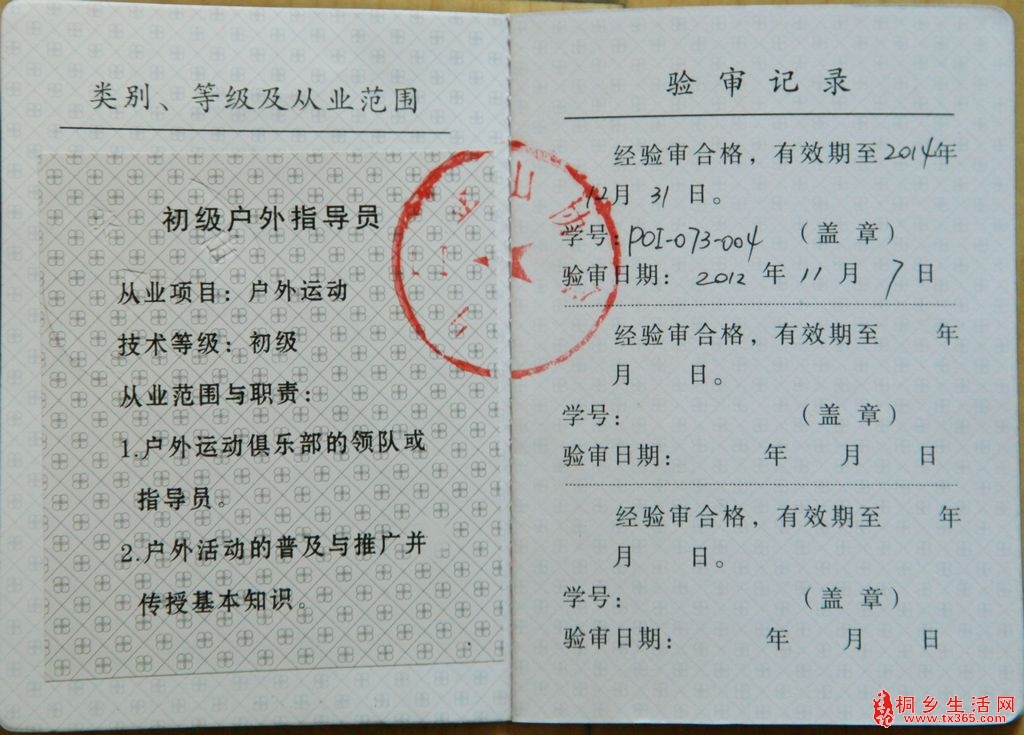 类别、等级及从业范围
初级户外指导员
从业项目：户外运动
技术等级：初级
从业范围与职责：
1.户外运动俱乐部的领队或
指导员。
2.户外活动的普及与推广并
传授基本知识。
山协
验审记录
经验审合格，有效期至2014年
12月31日。
学号：POI-073-004（盖章）
验审日期：2012年11月7日
经验审合格，有效期至 年
月 日。
学号： （盖章）
验审日期： 年 月 日
经验审合格，有效期至 年
月 日。
学号： （盖章）
验审日期： 年 月 日
桐乡生活网
www.tx365.com